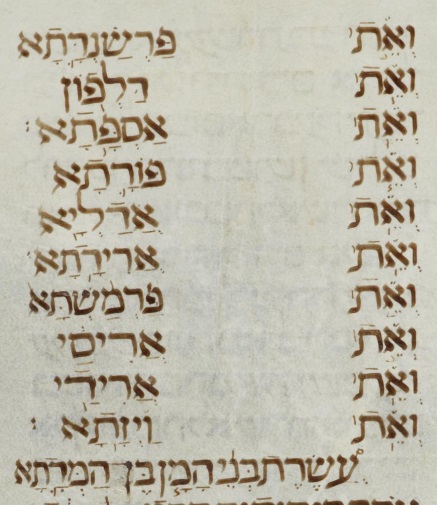 וְאֵ֧ת פַּרְשַׁנְדָּ֛תָא
וְאֵ֥ת דַּֽלְפ֖וֹן
וְאֵ֥ת אַסְפָּֽתָא׃
וְאֵ֧ת פּוֹרָ֛תָא
וְאֵ֥ת אֲדַלְיָ֖א
וְאֵ֥ת אֲרִידָֽתָא׃
וְאֵ֤ת פַּרְמַ֙שְׁתָּא֙
וְאֵ֣ת אֲרִיסַ֔י
וְאֵ֥ת אֲרִידַ֖י
וְאֵ֥ת וַיְזָֽתָא׃
עֲשֶׂרֶת בְּנֵי הָמָן בֶּן הַמְּדָתָא